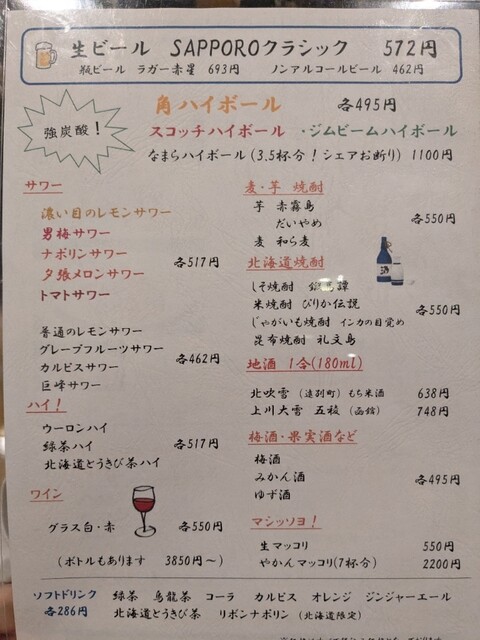 生ビール SAPPOROクラシック 572円
瓶ビール ラガー赤星 693円 ノンアルコールビール 462円
強炭酸！
角ハイボール 各495円
スコッチハイボール ・ジムビームハイボール
なまらハイボール(3.5杯分！シェアお断り) 1100円
サワー
濃い目のレモンサワー
男梅サワー
ナポリンサワー 各517円
夕張メロンサワー
トマトサワー
普通のレモンサワー
グレープフルーツサワー 各462円
カルピスサワー
巨峰サワー
ハイ！
ウーロンハイ
緑茶ハイ 各517円
北海道とうきび茶ハイ
ワイン
グラス白・赤 各550円
(ボトルもあります 3850円～)
麦・芋 焼酎
芋 赤霧島
だいやめ 各550円
麦 和ら麦
北海道焼酎
しそ焼酎 鍛高譚
米焼酎 ぴりか伝説 各550円
じゃがいも焼酎 インカの目覚め
昆布焼酎 礼文島
地酒 1合(180ml)
北吹雪 (遠別町) もち米酒 638円
上川大雪 五稜 (函館) 748円
梅酒・果実酒など
梅酒
みかん酒 各495円
ゆず酒
マシッソヨ！
生マッコリ 550円
やかんマッコリ(7杯分) 2200円
ソフトドリンク 緑茶 烏龍茶 コーラ カルピス オレンジ ジンジャーエール
各286円 北海道とうきび茶 リボンナポリン (北海道限定)